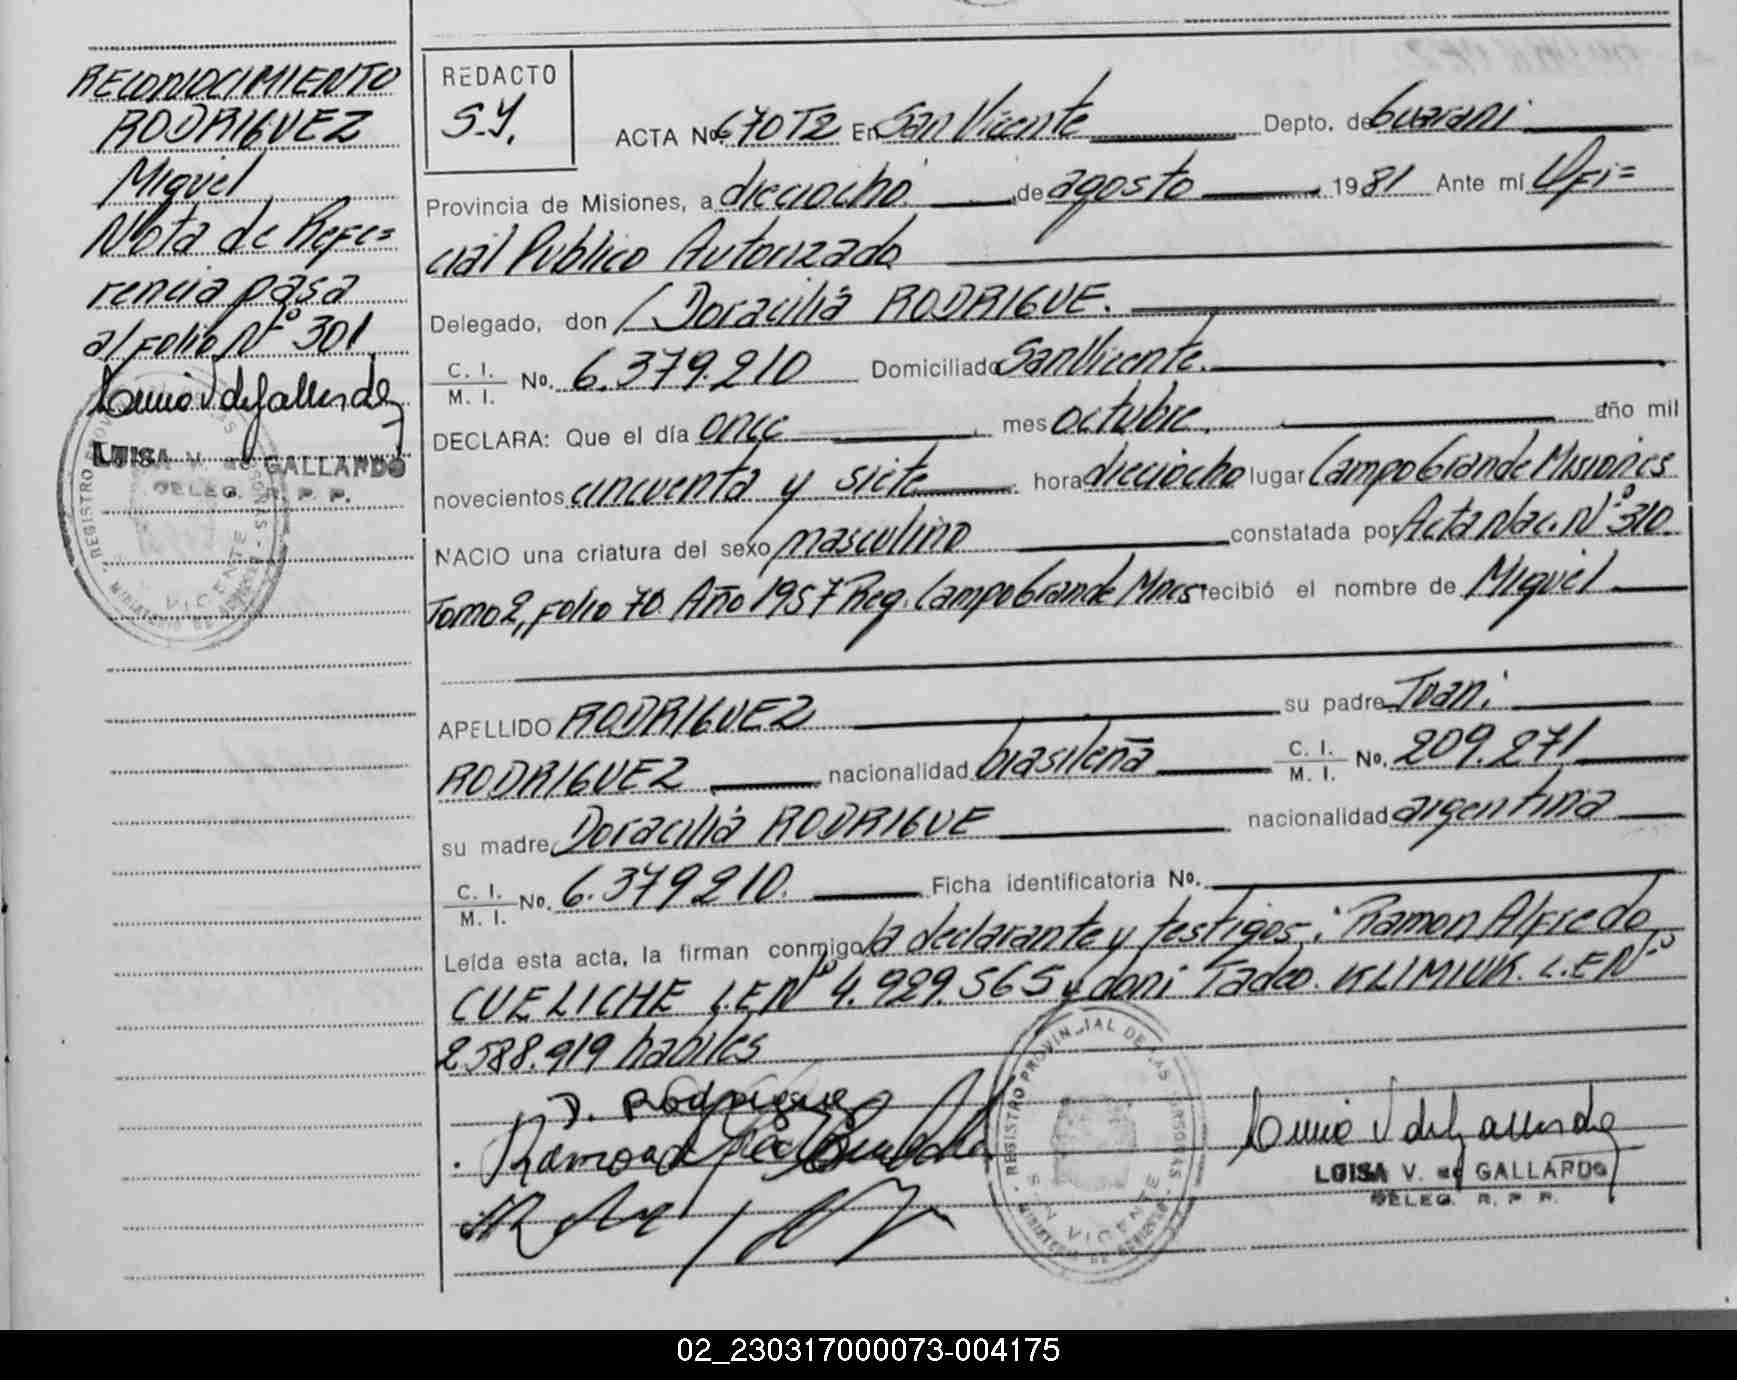 RECONOCIMIENTO
RODRIGUEZ
Miguel
Nota de Refe=
rencia pasa
al folio Nº 301
LUISA V. de GALLARDO
DELEG. R. P. P.
REGISTRO PROVINCIAL DE LAS PERSONAS
VICENTE
REDACTO
S.Y.
ACTA No. 670 T2 En San Vicente Depto. de Guarani
Provincia de Misiones, a dieciocho de agosto 1981 Ante mí Ofi=
cial Publico Autorizado
Delegado, don / Doracilia RODRIGUE.
C. I. / M. I. No. 6.379.210 Domiciliado San Vicente.
DECLARA: Que el día once mes octubre. año mil
novecientos cincuenta y siete hora dieciocho lugar Campo Grande Misiones
NACIO una criatura del sexo masculino constatada por Acta Nac. Nº 310.
Tomo 2, folio 70 Año 1957 Reg. Campo Grande Mnes recibió el nombre de Miguel
APELLIDO RODRIGUEZ su padre Juan
RODRIGUEZ nacionalidad brasileña C. I. / M. I. No. 209.271
su madre Doracilia RODRIGUE nacionalidad argentina
C. I. / M. I. No. 6.379210. Ficha identificatoria No.
Leída esta acta, la firman conmigo la declarante y testigos: Ramon Alfredo
CUELICHE L.E Nº 4.929.565 y don Tadeo. KLIMIUK. L.E Nº
2.588.919 habiles
D. Rodriguez
REGISTRO PROVINCIAL DE LAS PERSONAS
SAN VICENTE
LUISA V. de GALLARDO
DELEG. R. P. P.
02_230317000073-004175